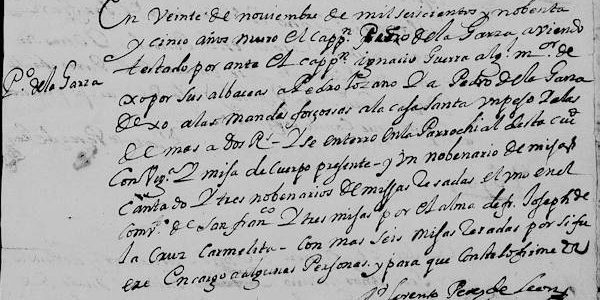 En Veinte de noviembre de mil seiscientos y nobenta
y cinco años murio el capp.n Pedro de la Garza aviendo
testado por ante el capp.n ignacio Guerra alg.l m.or de
P.o de la Garza
xo por sus albaceas a Pedro Lozano Y a Pedro de la Garza
Dexo, a las mandas forçossas a la cassa santa un peso Y a las
de mas a dos R.s Y se enterro en la Parrochial desta ciu.d
Con Vig.a Y misa de cuerpo presente - y Un nobenario de misas
Cantado Y tres nobenarios de missas Resadas el Uno en el
Com.to de San fran.co Y tres misas por el alma de fr. Joseph de
la Cruz Carmelita - Con mas seis misas Resadas por si fu
ere Encargo a algunas Personas, y para que conste lo firme
Lorenzo Perez de Leon